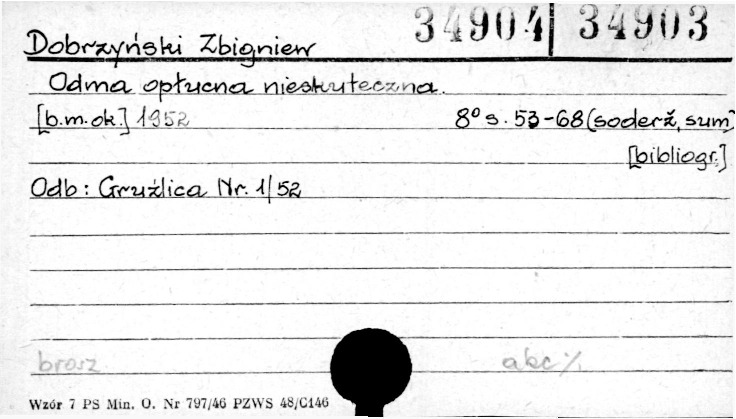 34904 | 34903
Dobrzyński Zbigniew
Odma opłucna nieskuteczna.
[b.m.ok.] 1952 8° s. 53-68 (soderž, sum)
[bibliogr.]
Odb: Gruźlica Nr. 1/52
brosz akc %
Wzór 7 PS Min. O. Nr 797/46 PZWS 48/C146